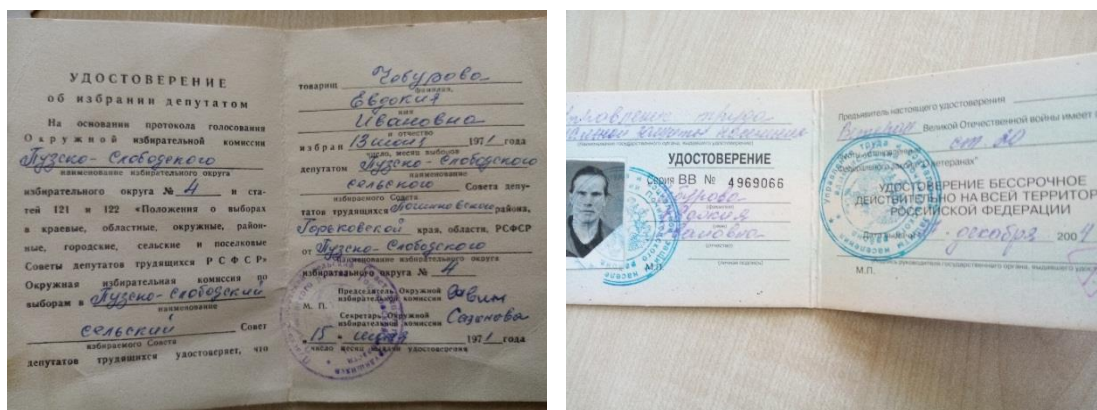 УДОСТОВЕРЕНИЕ
об избрании депутатом
На основании протокола голосования
Окружной избирательной комиссии
Пузско-Слободского
наименование избирательного округа
избирательного округа № 4 и ста-
тей 121 и 122 «Положения о выборах
в краевые, областные, окружные, район-
ные, городские, сельские и поселковые
Советы депутатов трудящихся РСФСР»
Окружная избирательная комиссия по
выборам в Пузско-Слободский
наименование
сельский Совет
избираемого Совета
депутатов трудящихся удостоверяет, что
товарищ Чобурова
фамилия,
Евдокия
имя
Ивановна
и отчество
избран 13 июня 1971 года
число, месяц выборов
депутатом Пузско-Слободского
наименование
сельского Совета депу-
избираемого Совета
татов трудящихся района,
Горьковской края, области, РСФСР
от Пузско-Слободского
наименование избирательного округа
избирательного округа № 4
Председатель Окружной
избирательной комиссии
М. П.
Секретарь Окружной
избирательной комиссии Сазонова
„15" июня 1971 года
число месяц выдачи удостоверения
Управление труда
защиты населения
(наименование государственного органа, выдавшего удостоверение)
УДОСТОВЕРЕНИЕ
Серия ВВ № 4969066
(фамилия)
(имя)
(отчество)
(личная подпись)
М.П.
Предъявитель настоящего удостоверения
Ветеран Великой Отечественной войны имеет п
ст. 20
ветеранах"
УДОСТОВЕРЕНИЕ БЕССРОЧНОЕ
ДЕЙСТВИТЕЛЬНО НА ВСЕЙ ТЕРРИТОР
РОССИЙСКОЙ ФЕДЕРАЦИИ
декабря 2004
М.П. руководителя государственного органа, выдавшего удос